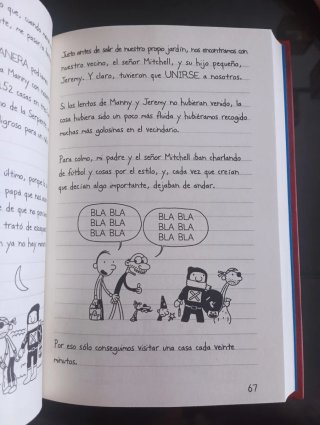 o que, cuando
me paso a
ANERA podíam
a Manny con
152 casas en
de la Serpente
ligroso para un
último, porque
papá que nos
de que no
trató de
ya no hay
Justo antes de salir de nuestro propio jardín, nos encontramos con
nuestro vecino, el señor Mitchell, y su hijo pequeño,
Jeremy. Y claro, tuvieron que UNIRSE a nosotros.
Si los lentos de Manny y Jeremy no hubieran venido, la
cosa hubiera sido un poco más fluida y hubiéramos recogido
muchas más golosinas en el vecindario.
Para colmo, mi padre y el señor Mitchell iban charlando
de fútbol y cosas por el estilo, y, cada vez que creían
que decían algo importante, dejaban de andar.
BLA BLA
BLA BLA
BLA BLA
BLA BLA
BLA BLA
BLA BLA
Por eso sólo conseguimos visitar una casa cada veinte
minutos.
67